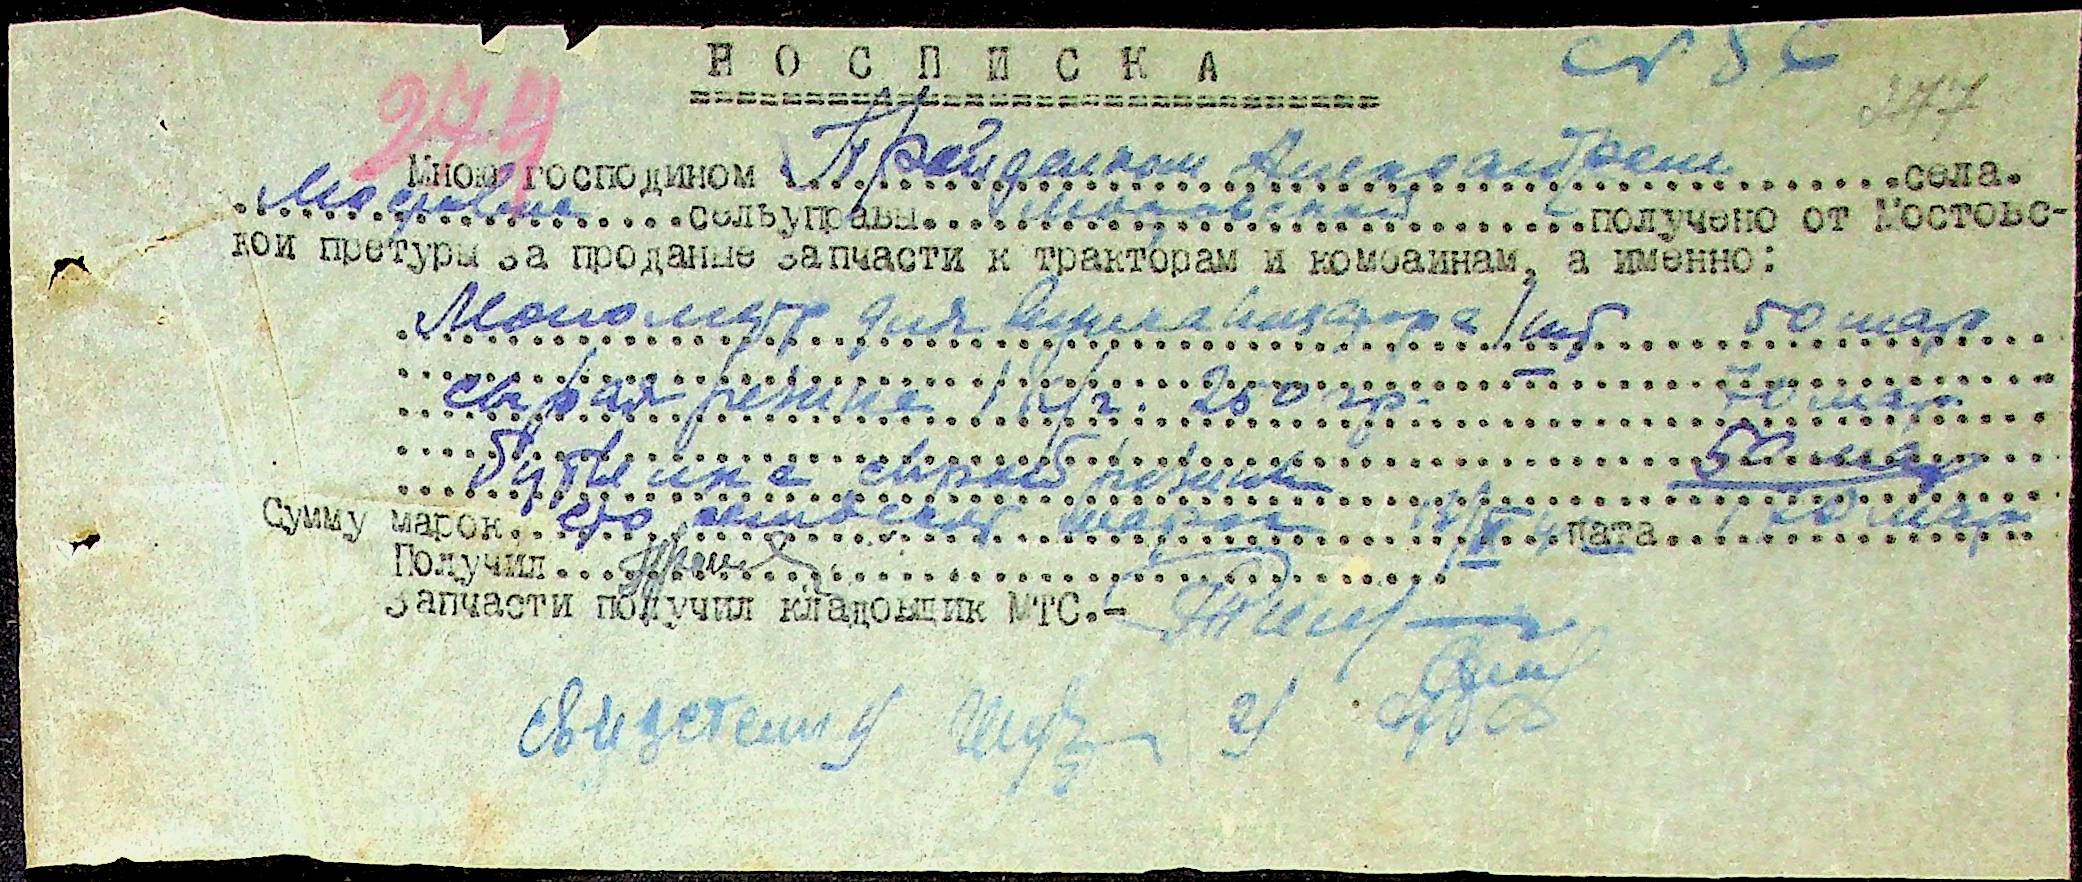 Н О С П И С К А
№ 86
279
277
Мною господином Крайданком Александром села.
Мостовое сельуправы Мостовской получено от Мостовс-
кои претуры за проданые запчасти к тракторам и комбаинам, а именно:
Монометр для вулканизатора 1 шт 50 мар
сырая резина 1 к/г. 250 гр. 70 мар
бутылка сырой резины 50 мар
Сумму марок сто семдесят марок дата 170 мар
Получил
Запчасти получил кладовщик МТС.-
свидетели 1/ 2/